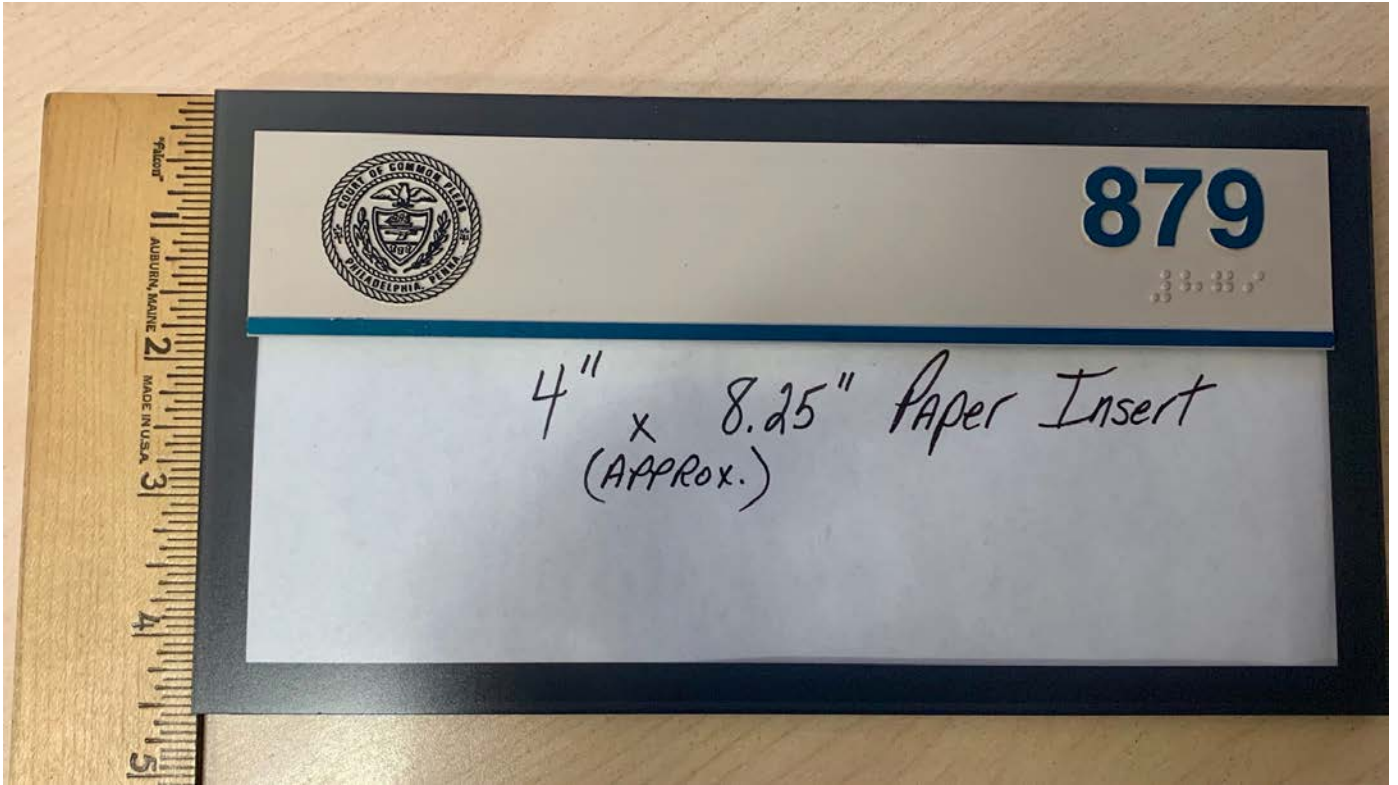 "Falcon"
1
AUBURN, MAINE
2
MADE IN U.S.A.
3
4
5
COURT OF COMMON PLEAS
PHILADELPHIA, PENNA
879
4" x 8.25" Paper Insert
(APPROX.)